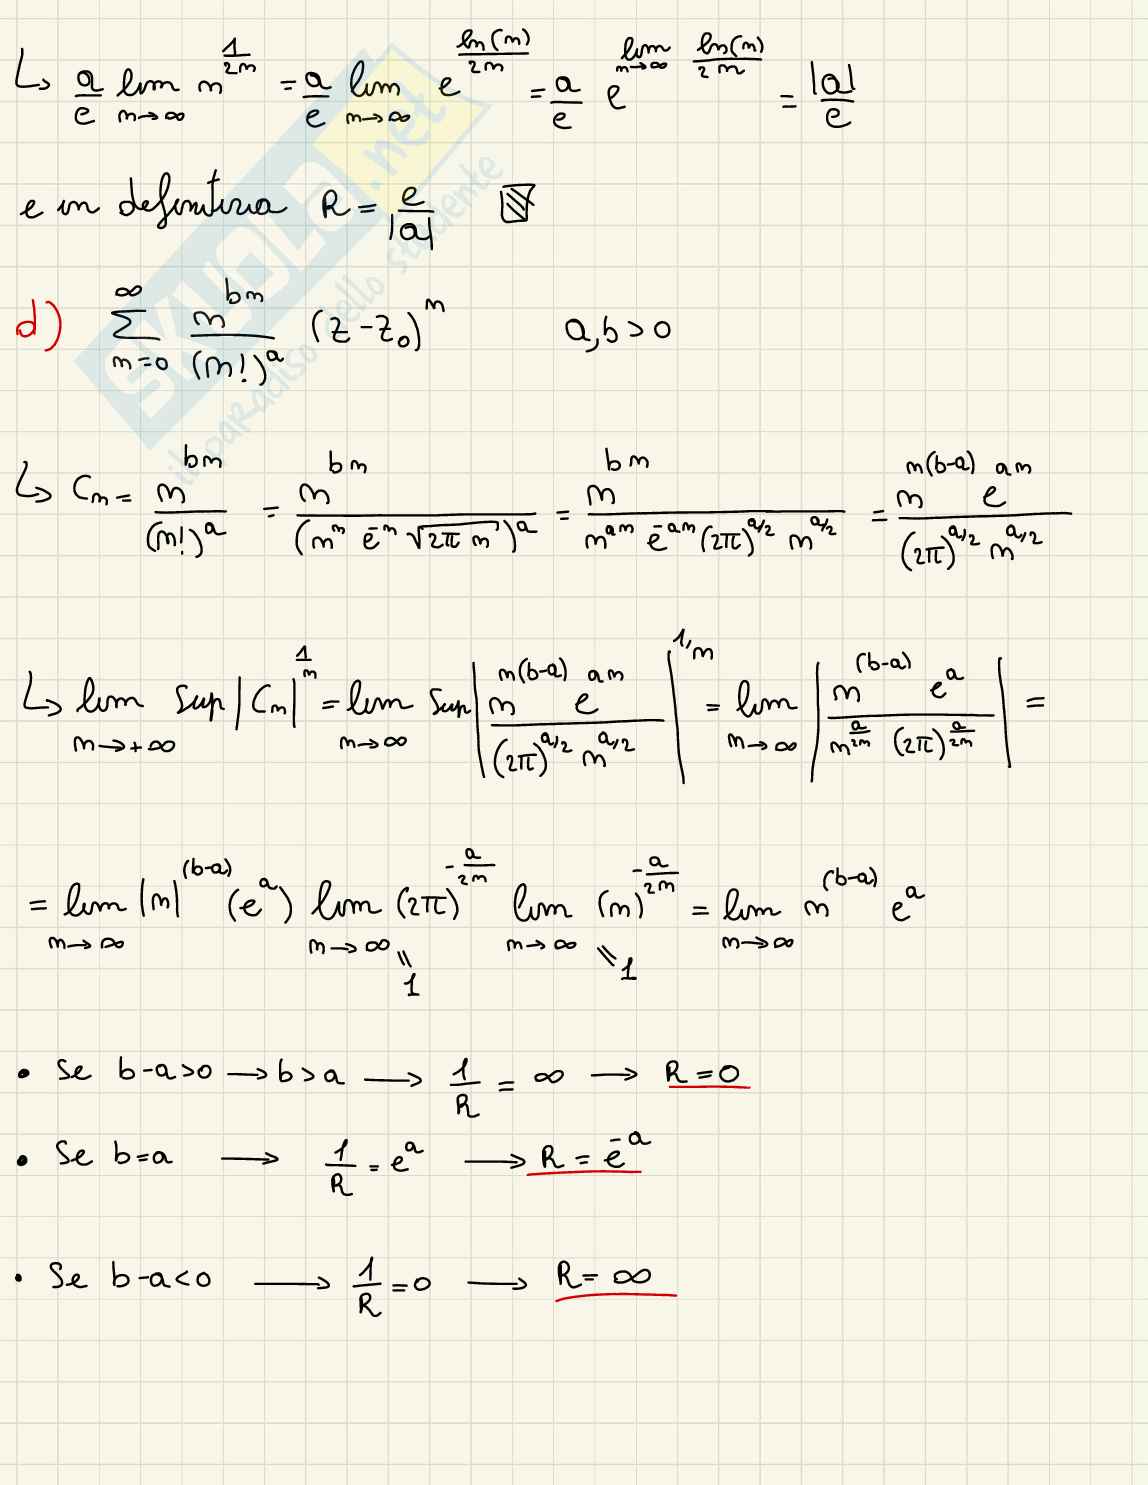 ↳ a/e lim_{n→∞} n^{1/2n} = a/e lim_{n→∞} e^{ln(n)/2n} = a/e e^{lim_{n→∞} ln(n)/2n} = |a|/e
e in definitiva R = e/|a|
d) ∑_{n=0}^{∞} n^{bn}/(n!)^a (z-z₀)^n a,b>0
↳ C_n = n^{bn}/(n!)^a = n^{bn}/(n^n e^{-n} √(2π n))^a = n^{bn}/(n^{an} e^{-an} (2π)^{a/2} n^{a/2}) = n^{n(b-a)} e^{an}/((2π)^{a/2} n^{a/2})
↳ lim sup_{n→+∞} |C_n|^{1/n} = lim sup_{n→∞} |n^{n(b-a)} e^{an}/((2π)^{a/2} n^{a/2})|^{1/n} = lim_{n→∞} |n^{(b-a)} e^a/(n^{a/2n} (2π)^{a/2n})| =
= lim_{n→∞} |n|^{(b-a)} (e^a) lim_{n→∞} (2π)^{-a/2n} lim_{n→∞} (n)^{-a/2n} = lim_{n→∞} n^{(b-a)} e^a
= 1 = 1
• Se b-a>0 → b>a → 1/R = ∞ → R=0
• Se b=a → 1/R = e^a → R = e^{-a}
• Se b-a<0 → 1/R = 0 → R = ∞
SKUOLA.net
il paradiso dello studente